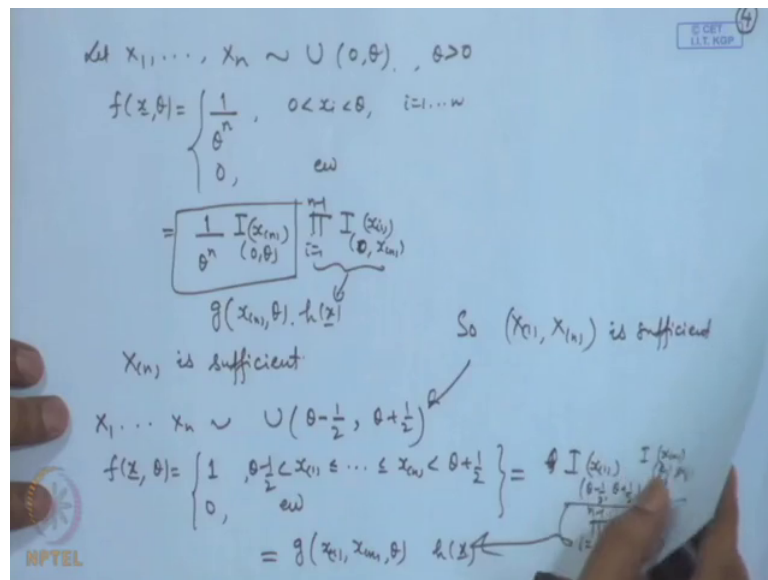 © CET
I.I.T. KGP
4
Let X₁, ..., Xₙ ~ U(0,θ), θ>0
f(x,θ) = { 1/θⁿ, 0<xᵢ<θ, i=1...n
0, ew
= 1/θⁿ I(x₍ₙ₎) (0,θ) ∏ᵢ₌₁ⁿ⁻¹ I(x₍ᵢ₎) (0, x₍ₙ₎)
g(x₍ₙ₎,θ). h(x)
So (X₍₁₎, X₍ₙ₎) is sufficient
X₍ₙ₎ is sufficient
X₁ ... Xₙ ~ U(θ-1/2, θ+1/2)
f(x, θ) = { 1, θ-1/2 < x₍₁₎ ≤ ... ≤ x₍ₙ₎ < θ+1/2 } = I(x₍₁₎) (θ-1/2, θ+1/2) I(x₍ₙ₎)
0, ew
= g(x₍₁₎, x₍ₙ₎, θ) h(x)
NPTEL